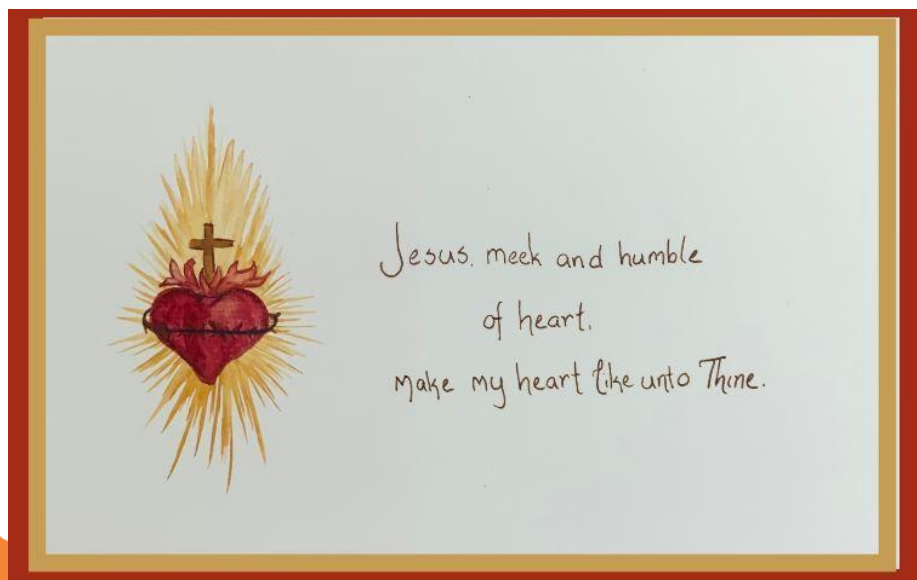 Jesus, meek and humble
of heart,
make my heart like unto Thine.